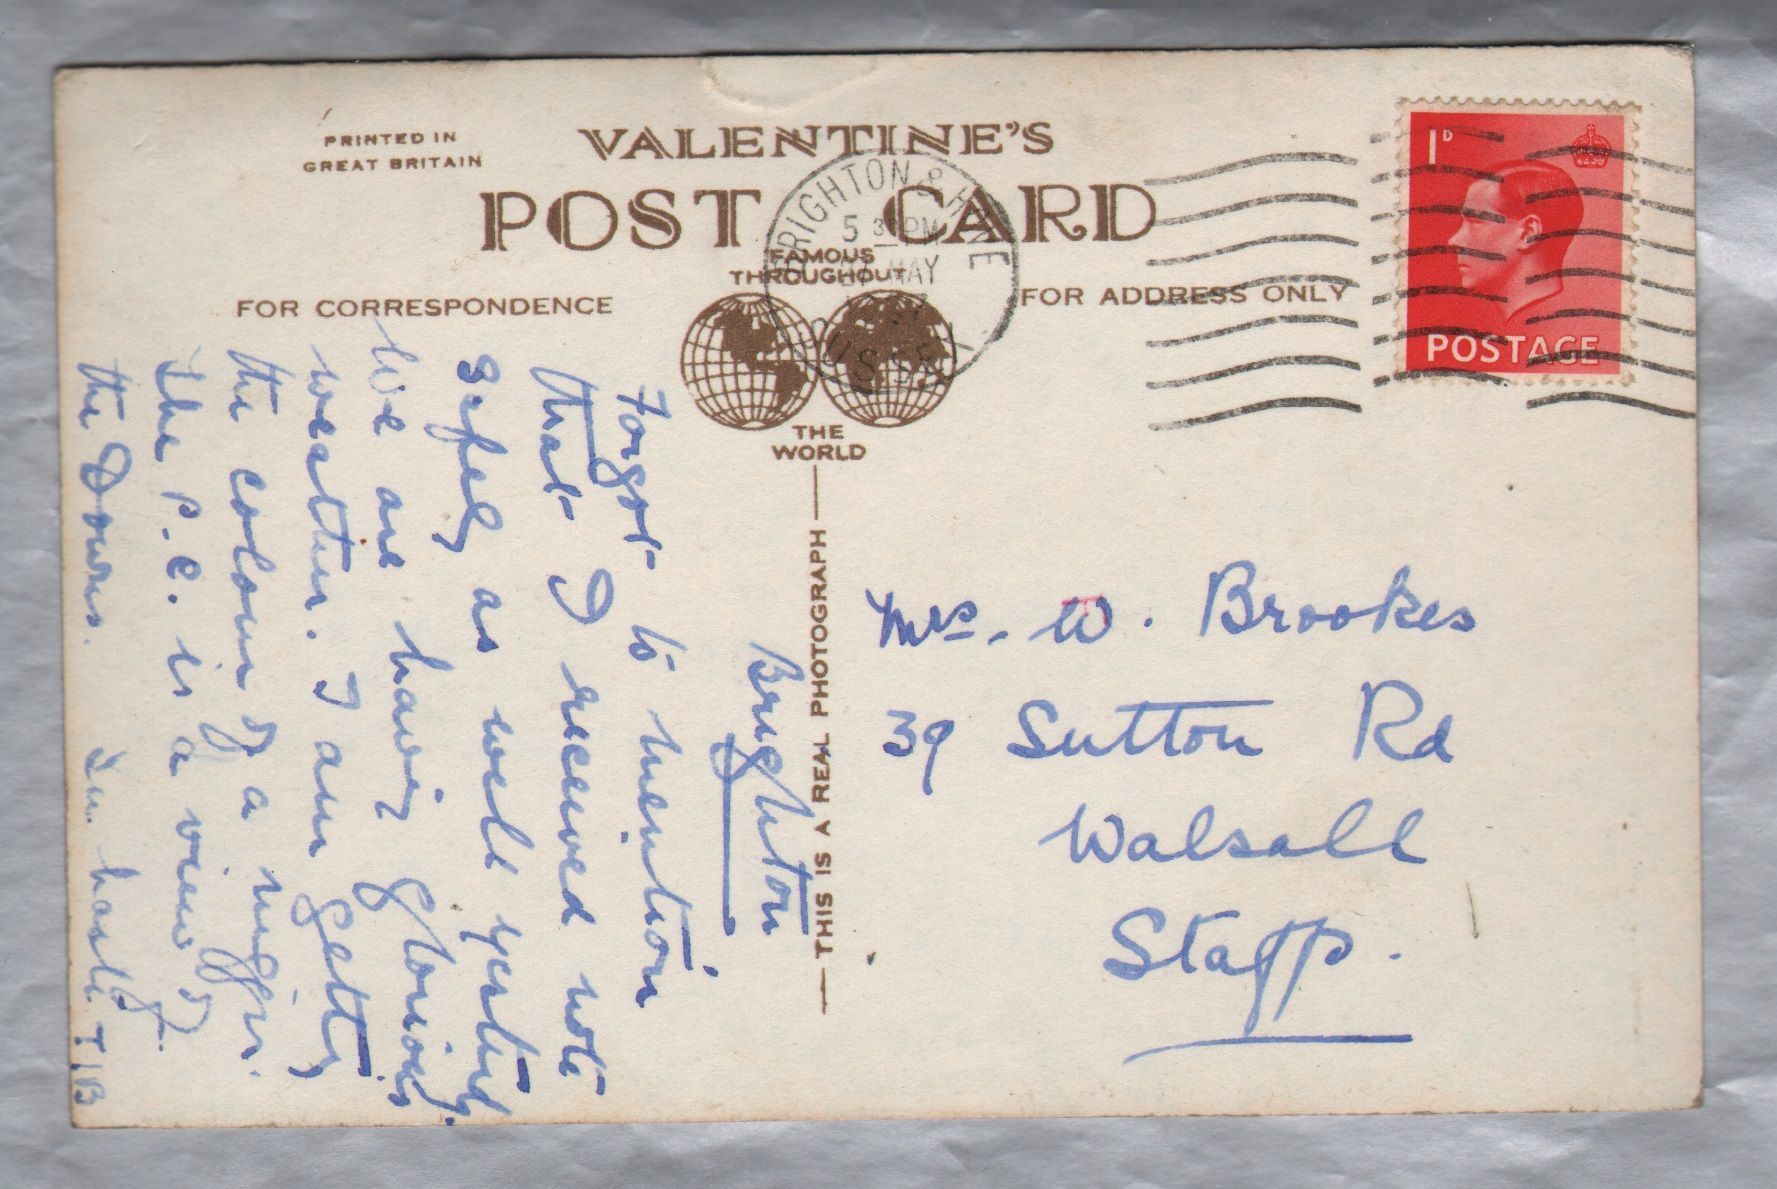 PRINTED IN
GREAT BRITAIN
VALENTINE'S
POST CARD
FAMOUS
THROUGHOUT
THE
WORLD
FOR CORRESPONDENCE
FOR ADDRESS ONLY
THIS IS A REAL PHOTOGRAPH
BRIGHTON & HOVE
5 3 PM
27 MAY
SUSSEX
1D
POSTAGE
Brighton
Forgot to mention
that I received note
safely as well yesterday.
We are having glorious
weather. I am getting
the colour of a nigger.
The P.C. is a view of
the Downs. In haste. TJB
Mrs. W. Brookes
39 Sutton Rd
Walsall
Staffs.